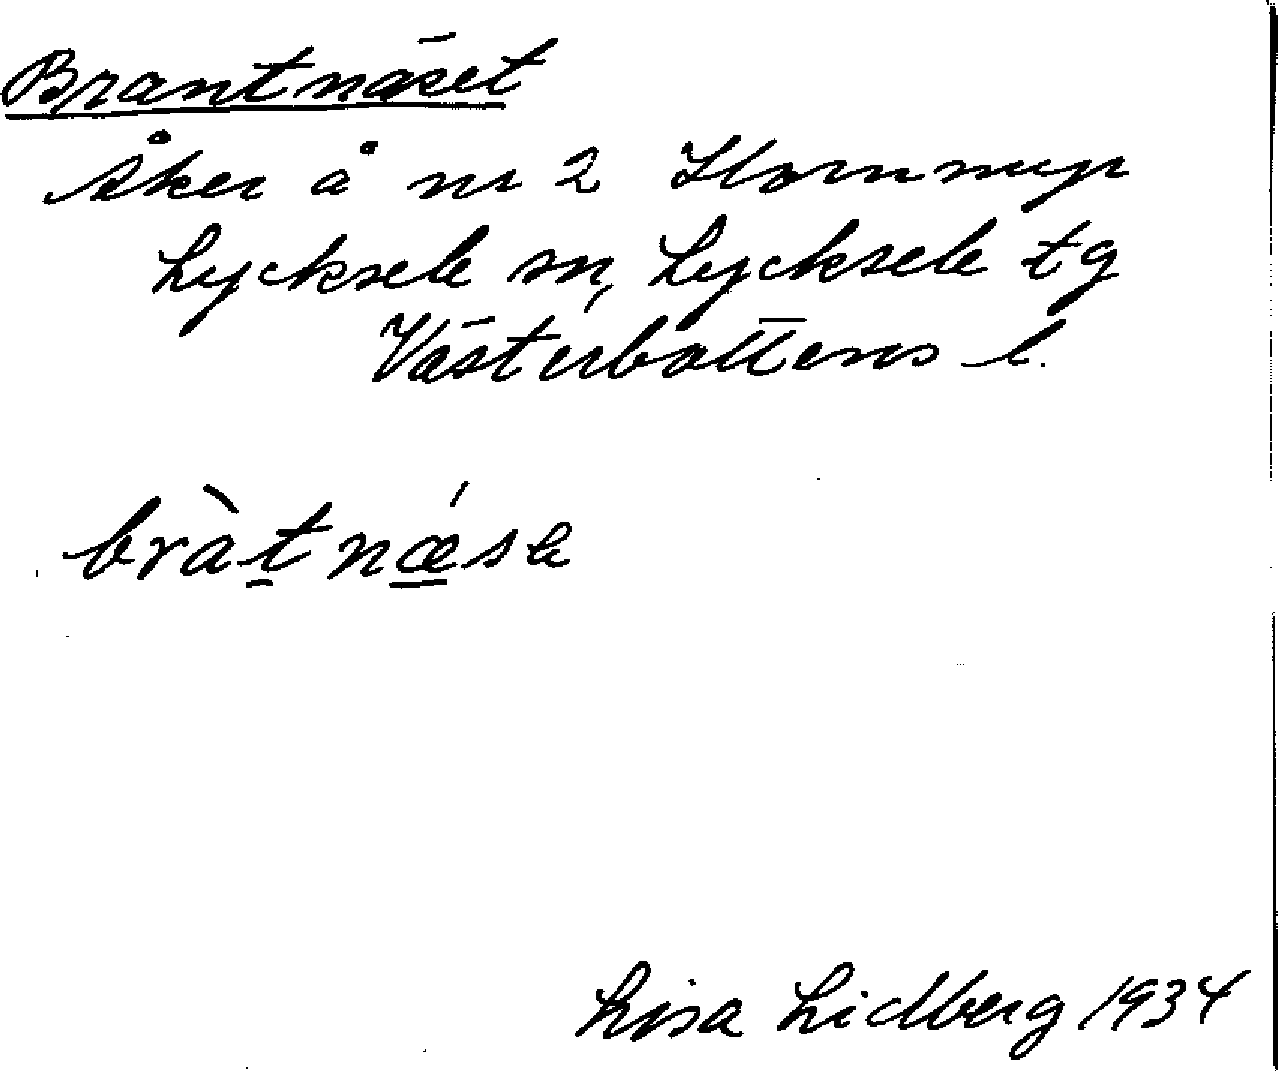 Brantnäset
Åker å nr 2 Kornmyr
Lycksele sn, Lycksele tg
Västerbottens l.
bràt̲nǽ̲sɐ
Lisa Lidberg 1934